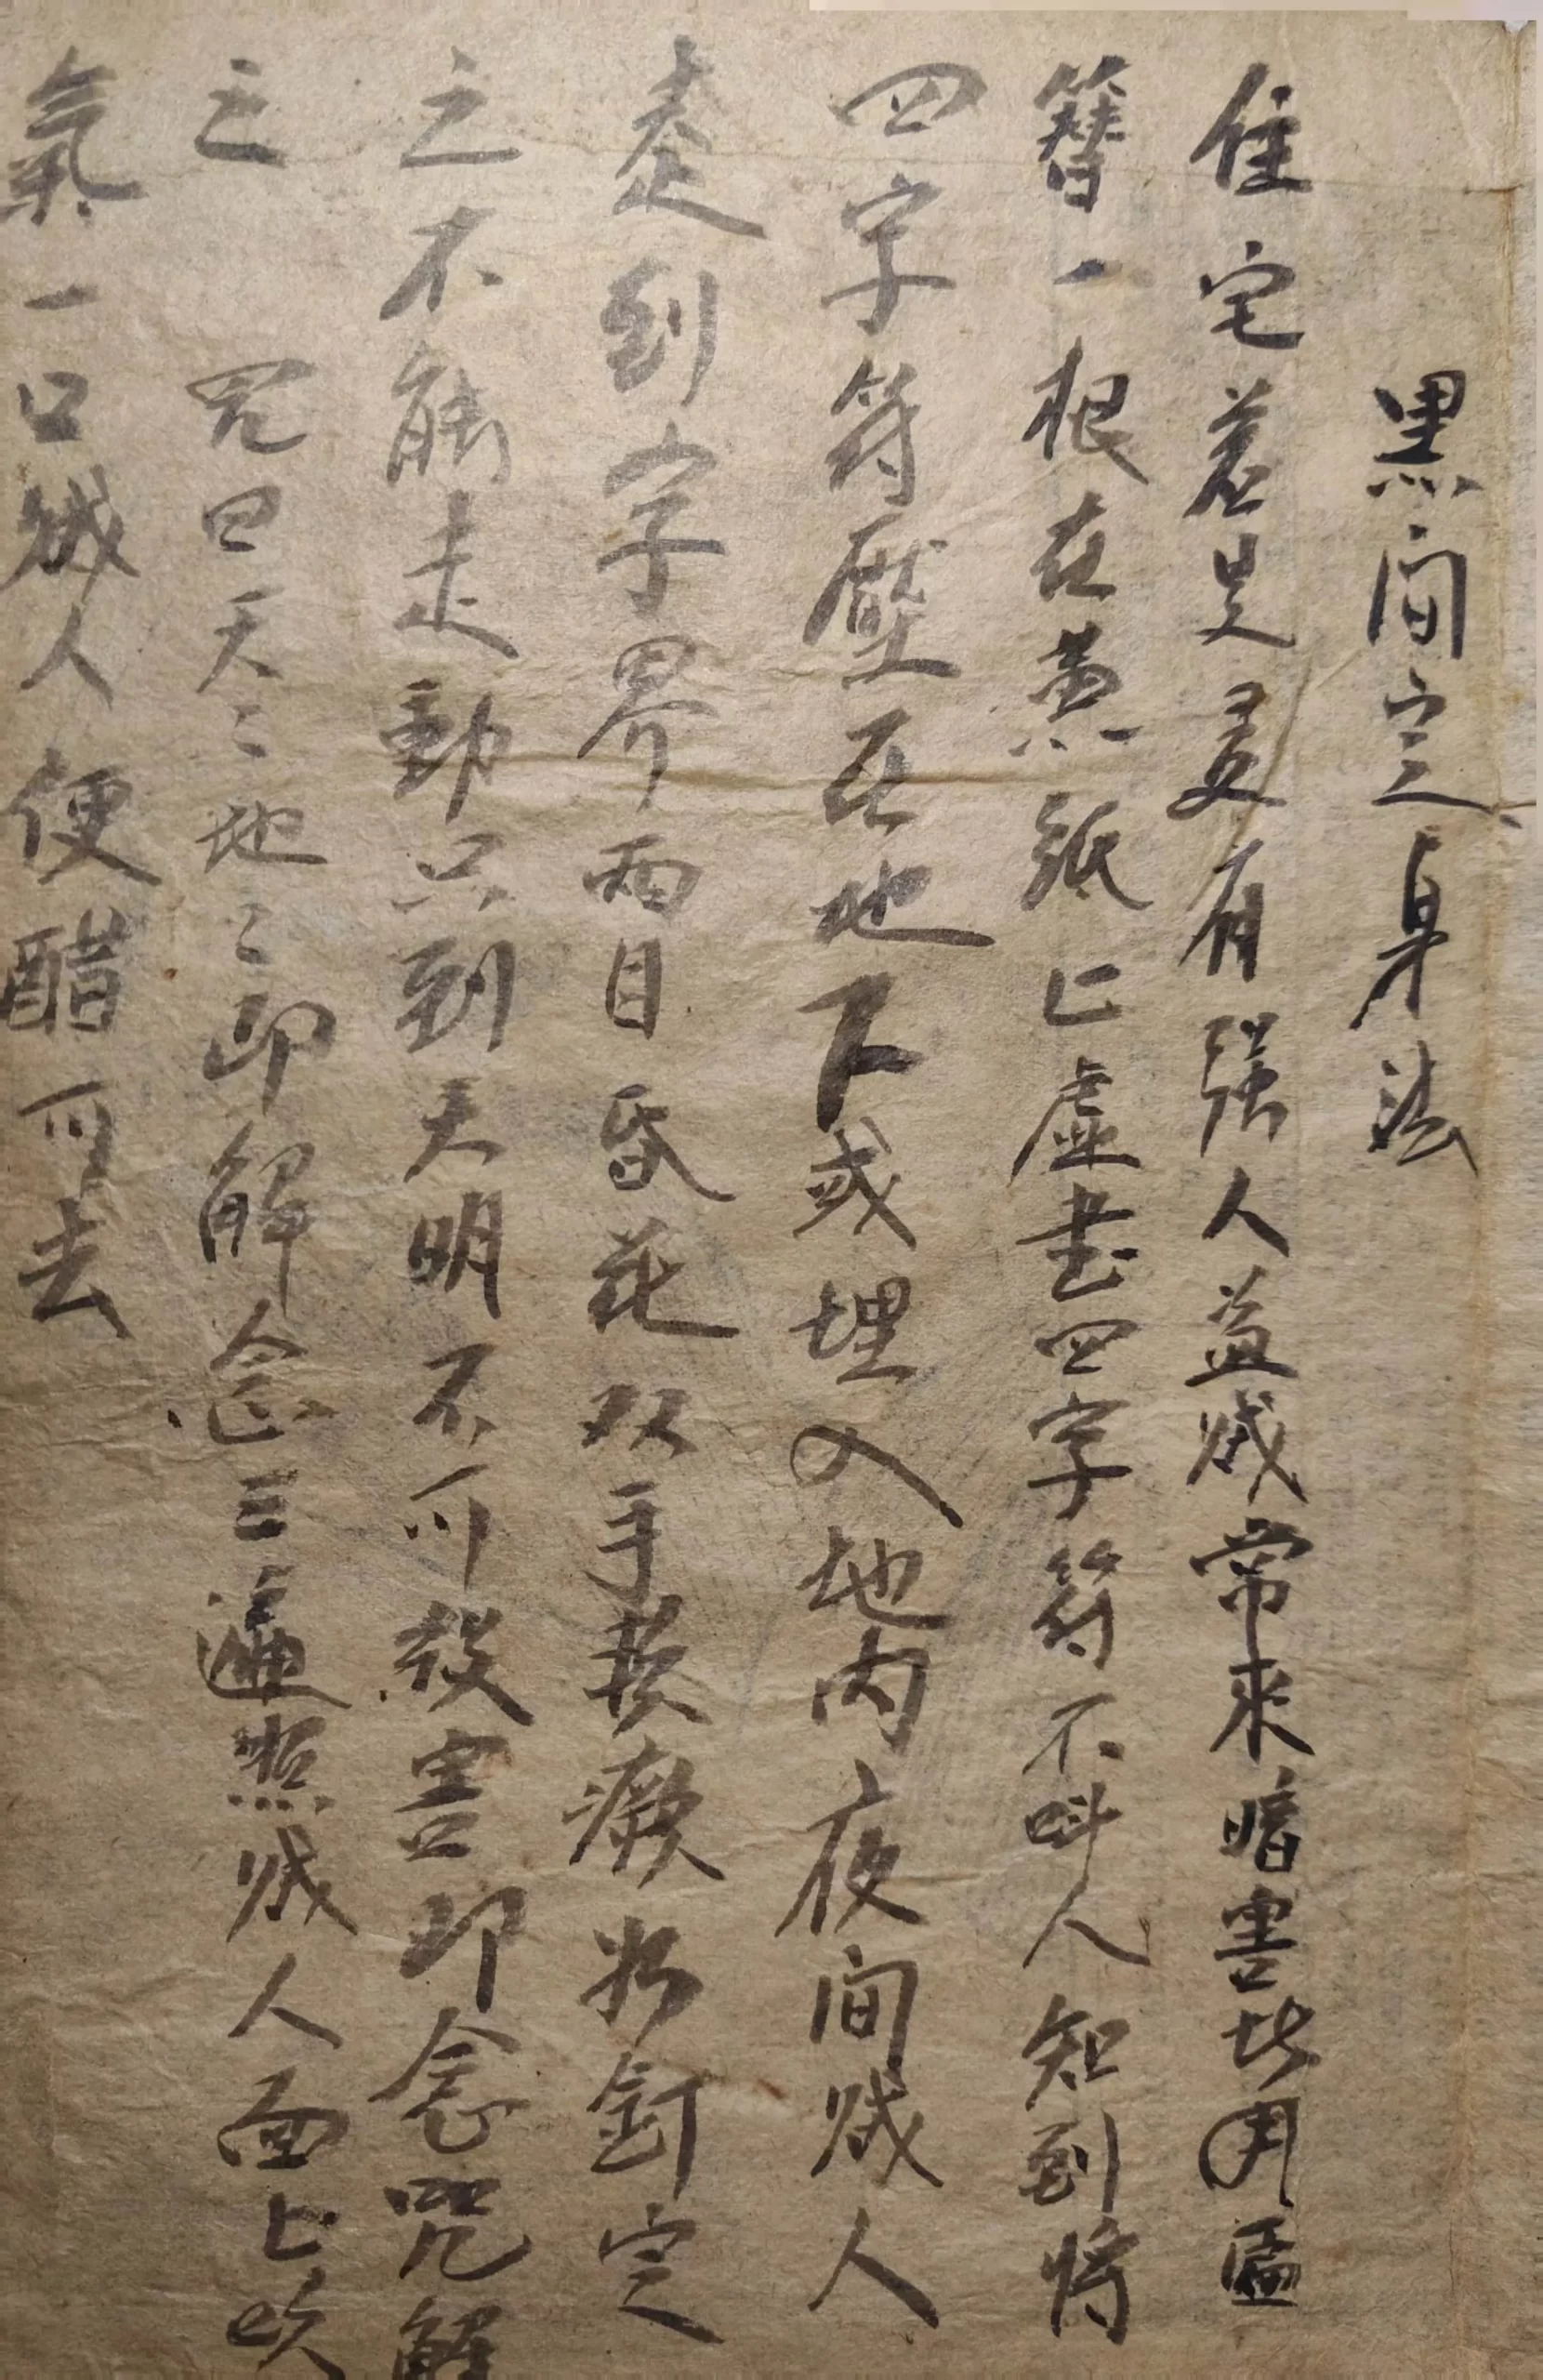 黑间定身法
住宅若是夏有强人盗贼常来暗害此用
簪一根在黄纸上虚书四字符不叫人知到将
四字符壓在地下或埋入地内夜间贼人
走到字界两目昏花双手麩瘸如釘定
之不能走動只到天明不可殺害即念咒解
之 咒曰天二地二即解念三遍照贼人面上吹
氣一口贼人便醋可去